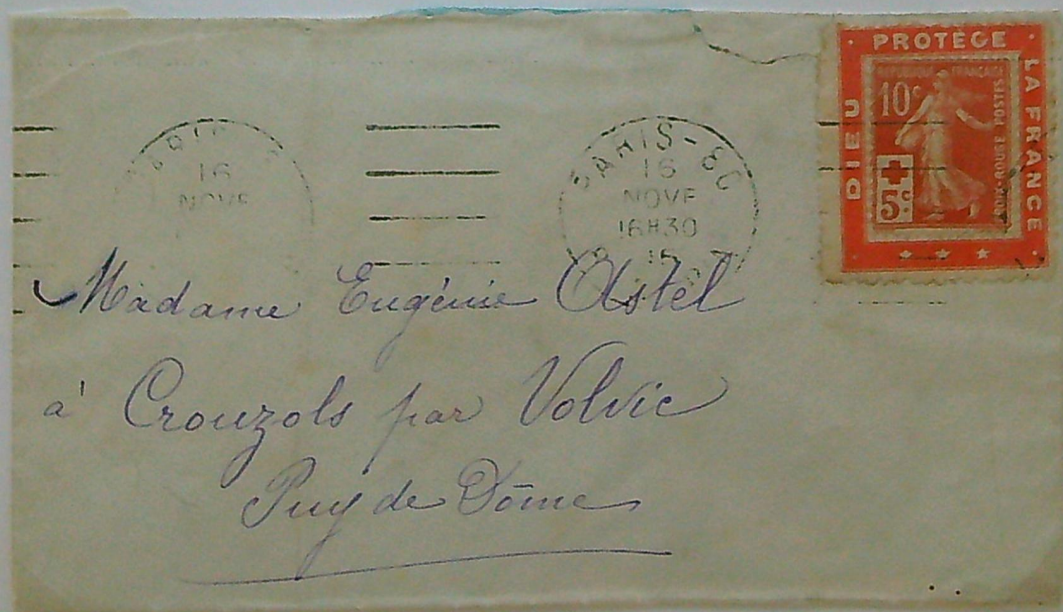 PARIS
16
NOVE
PARIS-80
16
NOVE
16H30
DIEU
· PROTÈGE ·
LA FRANCE
RÉPUBLIQUE FRANÇAISE
10c
CROIX-ROUGE POSTES
+
5c
Madame Eugénie Astel
à Crouzols par Volvic
Puy de Dôme